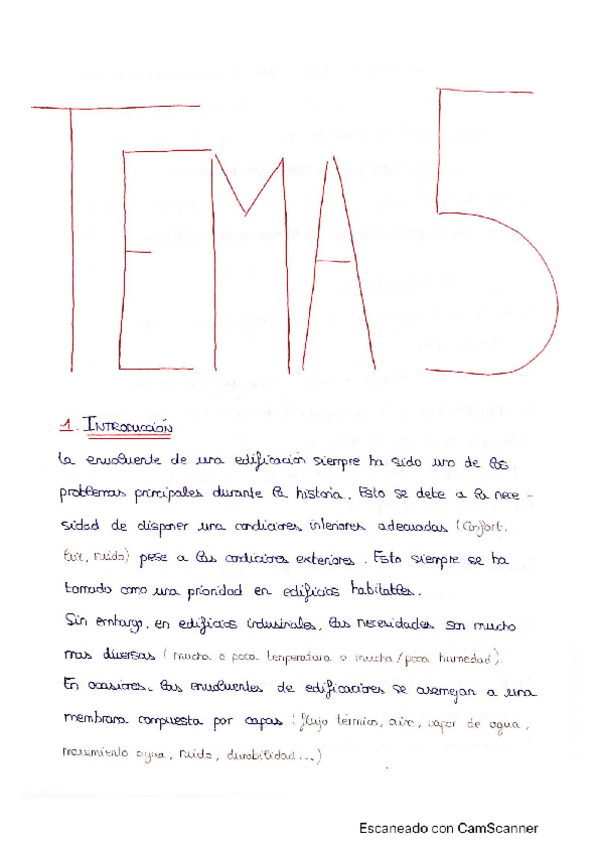 TEMA 5
1. INTRODUCCIÓN
La envolvente de una edificación siempre ha sido uno de los
problemas principales durante la historia. Esto se debe a la nece-
sidad de disponer una condiciones interiores adecuadas (Confort,
luz, ruido) pese a las condiciones exteriores. Esto siempre se ha
tomado como una prioridad en edificios habitables.
Sin embargo, en edificios industriales, las necesidades son mucho
mas diversas (mucha o poca temperatura o mucha/poca humedad).
En ocasiones, las envolventes de edificaciones se asemejan a una
membrana compuesta por capas (flujo térmico, aire, vapor de agua,
movimiento agua, ruido, durabilidad...)
Escaneado con CamScanner